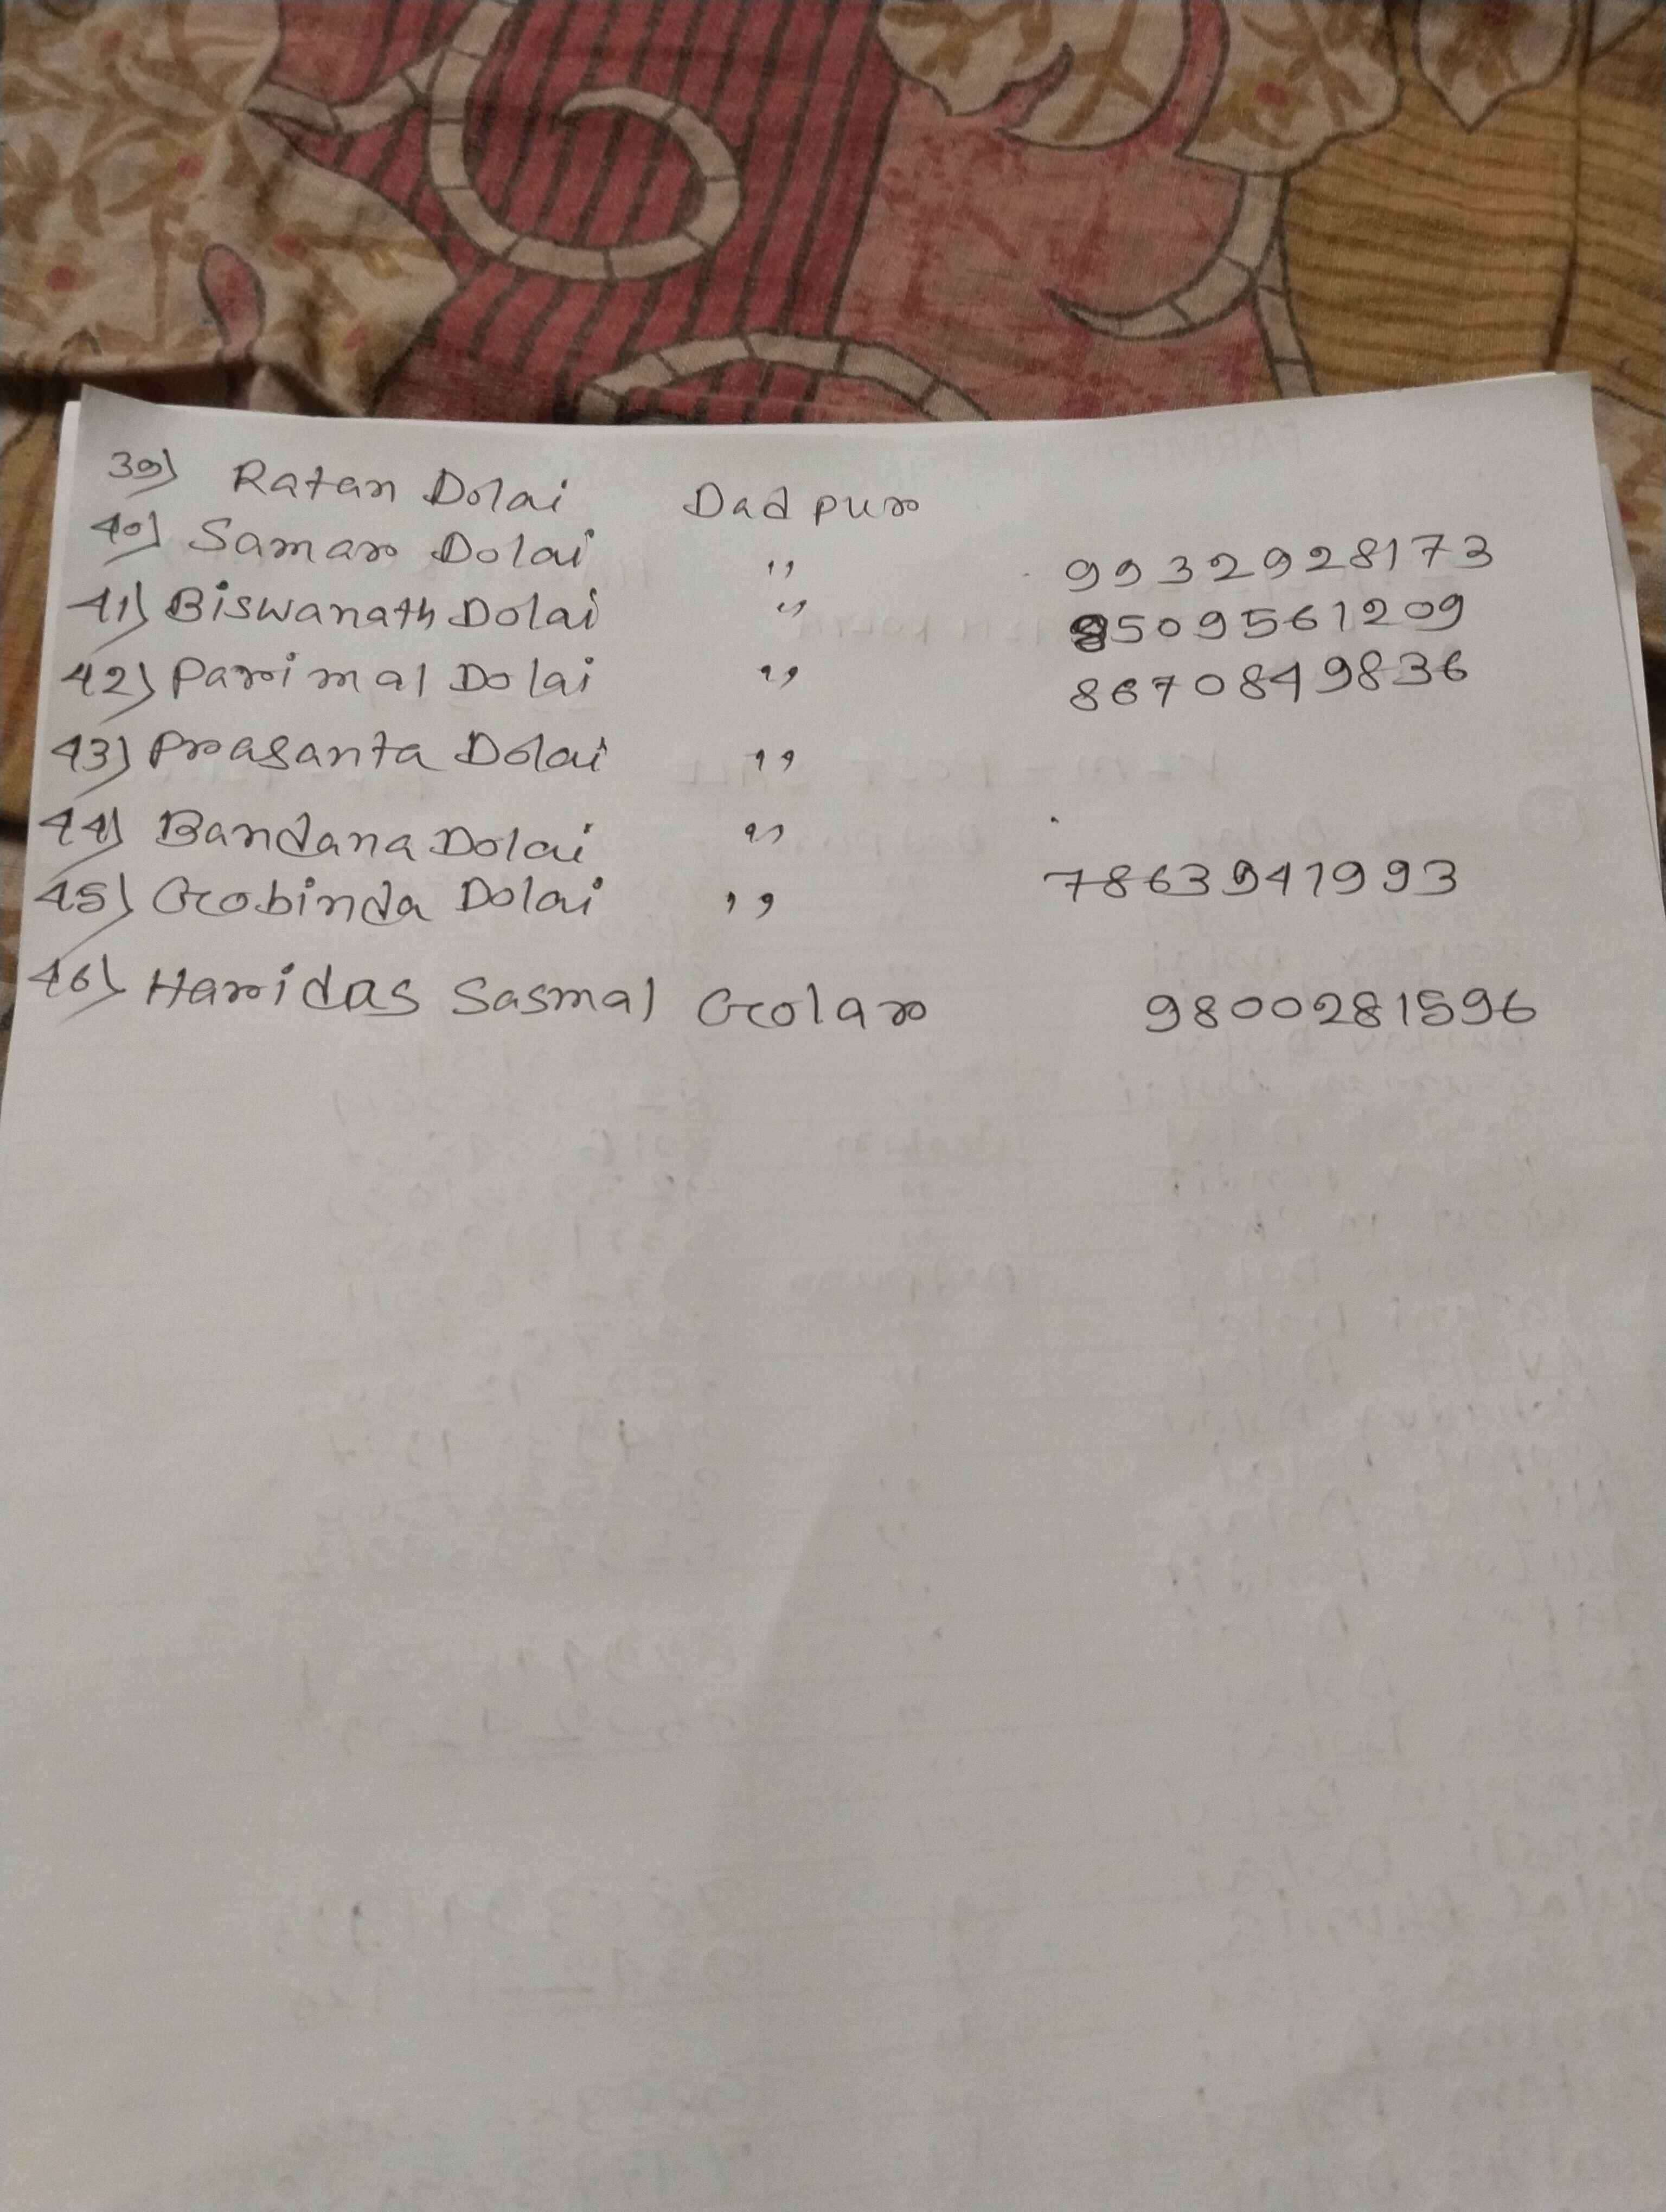 39) Ratan Dolai Dadpur
40) Samar Dolai " 9932928173
41) Biswanath Dolai " 8509561209
42) Parimal Dolai " 8670849836
43) Prasanta Dolai "
44) Bandana Dolai "
45) Gobinda Dolai " 7863941993
46) Haridas Sasmal Golar 9800281596